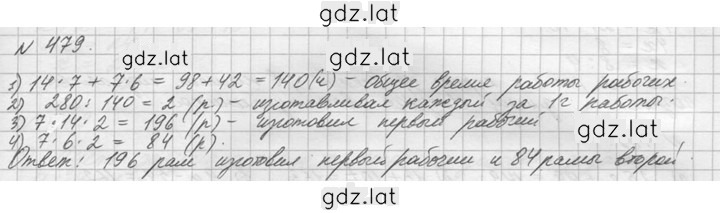 gdz.lat
№ 479.
gdz.lat gdz.lat
1) 14·7 + 7·6 = 98 + 42 = 140 (ч) - общее время работы рабочих.
2) 280 : 140 = 2 (р) - изготавливал каждый за 1 г работы.
3) 7·14·2 = 196 (р) - изготовил первый рабочий
4) 7·6·2 = 84 (р).
gdz.lat gdz.lat
Ответ: 196 рам изготовил первый рабочий и 84 рамы второй.
gdz.lat